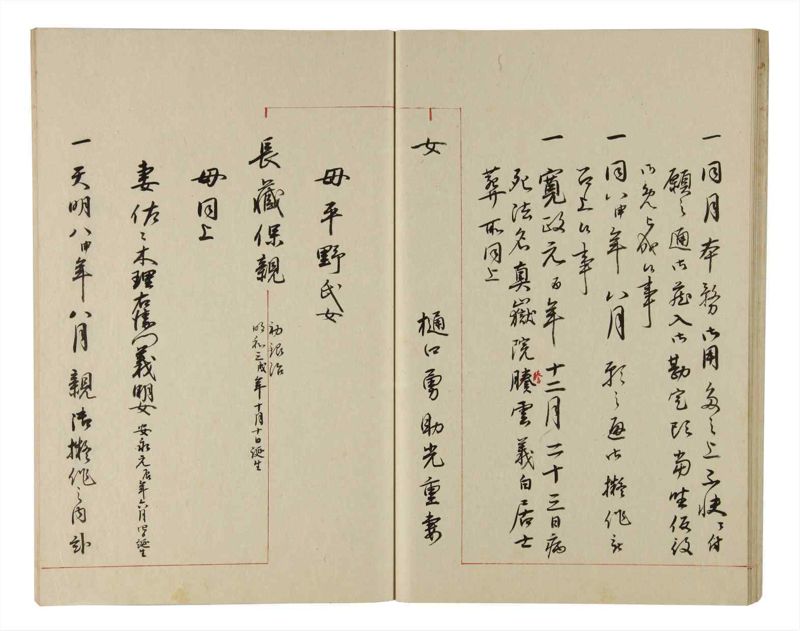 一同月本務御用多之上不快ニ付
願之通御蔵入御勘定頭当時仮役
御免被成候事
一同八申年八月願之通御擬作
召上候事
一寛政元酉年十二月二十三日病
死法名真嶽院賸雲義白居士
葬所同上
女
樋口勇助光重妻
母平野氏女
長蔵保親
初銀治
明和三戌年十月十日誕生
母同上
妻佐々木理右衛門義明女
安永元辰年六月 誕生
一天明八申年八月親清擬作之内